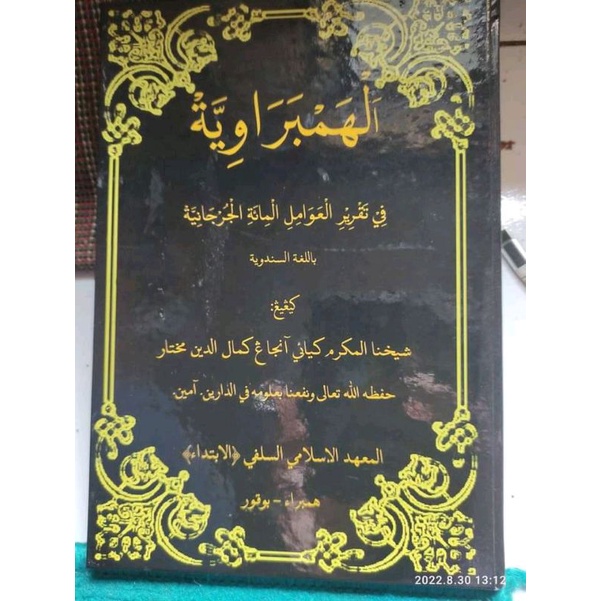 اَلْهَمْبَرَاوِيَّةْ
فِيْ تَقْرِيْرِ الْعَوَامِلِ الْمِائَةِ الْجُرْجَانِيَّةْ
باللغة السندوية
كيڠيڠ:
شيخنا المكرم كيائي آنجاڠ كمال الدين مختار
حفظه الله تعالى ونفعنا بعلومه في الدارين. آمين.
المعهد الإسلامي السلفي ﴿الإبتداء﴾
همبراء - بوڮور
2022.8.30 13:12